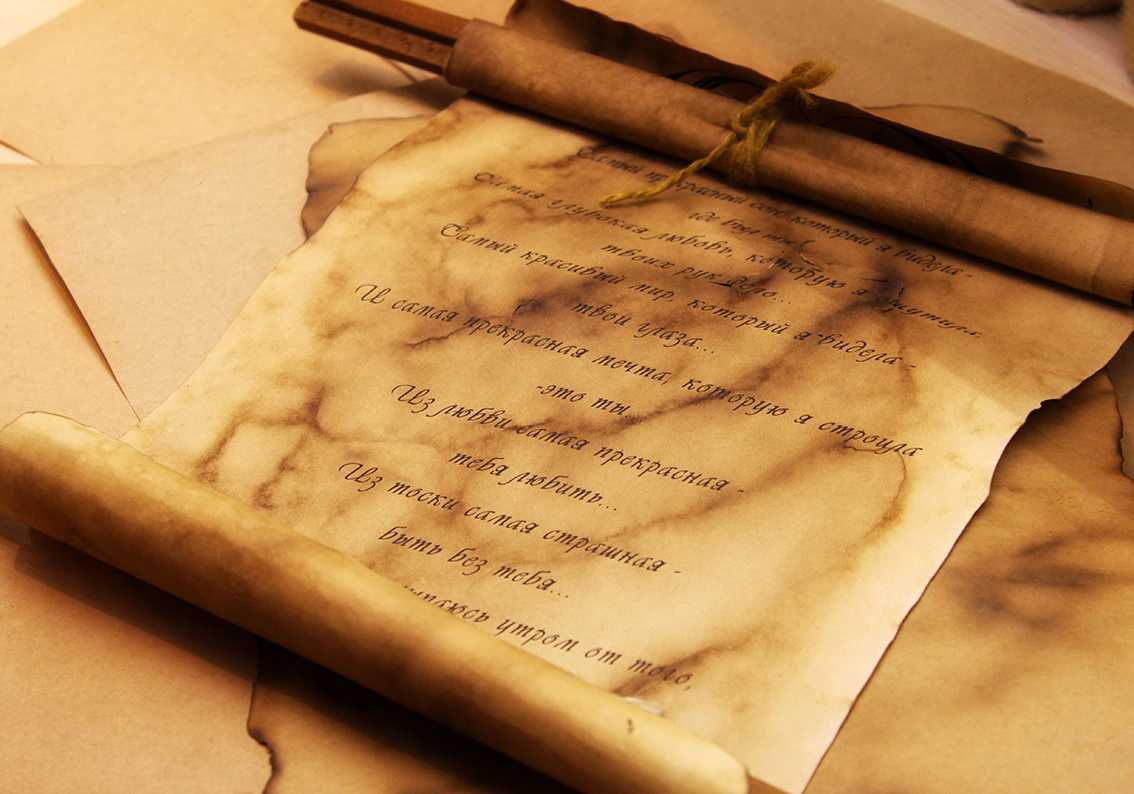 Самый прекрасный сон, который я видела -
Самая глубокая любовь, которую я
твоих рук
Самый красивый мир, который я видела -
твои глаза...
И самая прекрасная мечта, которую я строила
-это ты.
Из любви самая прекрасная -
тебя любить...
Из тоски самая страшная -
быть без тебя...
утром от того,